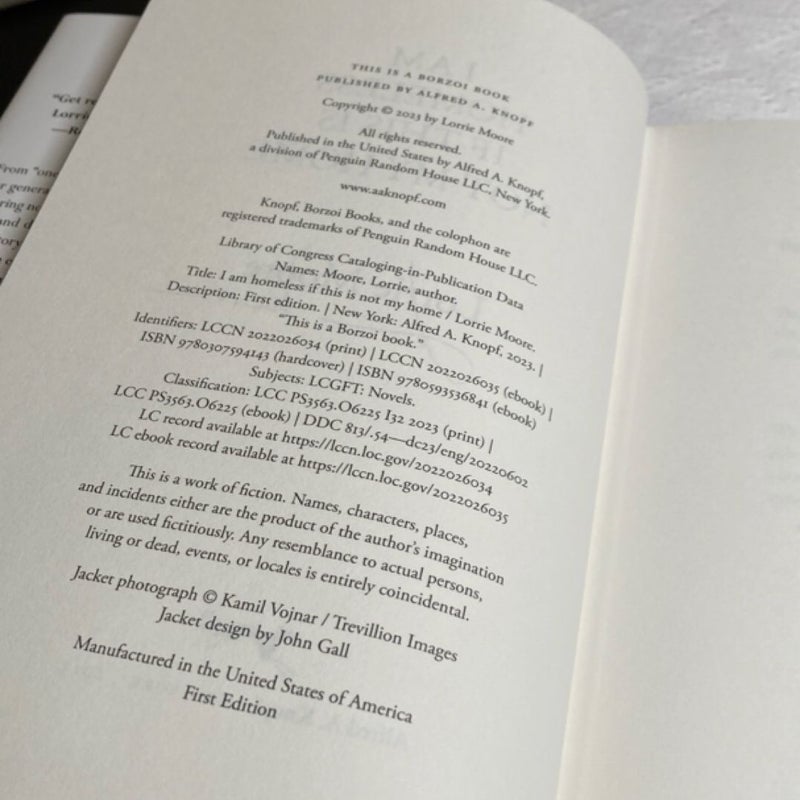 "Get
Lorri
From "one
THIS IS A BORZOI BOOK
PUBLISHED BY ALFRED A. KNOPF
Copyright © 2023 by Lorrie Moore
All rights reserved.
Published in the United States by Alfred A. Knopf,
a division of Penguin Random House LLC, New York.
www.aaknopf.com
Knopf, Borzoi Books, and the colophon are
registered trademarks of Penguin Random House LLC.
Library of Congress Cataloging-in-Publication Data
Names: Moore, Lorrie, author.
Title: I am homeless if this is not my home / Lorrie Moore.
Description: First edition. | New York: Alfred A. Knopf, 2023. |
"This is a Borzoi book."
Identifiers: LCCN 2022026034 (print) | LCCN 2022026035 (ebook) |
ISBN 9780307594143 (hardcover) | ISBN 9780593536841 (ebook)
Subjects: LCGFT: Novels.
Classification: LCC PS3563.O6225 I32 2023 (print) |
LCC PS3563.O6225 (ebook) | DDC 813/.54—dc23/eng/20220602
LC record available at https://lccn.loc.gov/2022026034
LC ebook record available at https://lccn.loc.gov/2022026035
This is a work of fiction. Names, characters, places,
and incidents either are the product of the author's imagination
or are used fictitiously. Any resemblance to actual persons,
living or dead, events, or locales is entirely coincidental.
Jacket photograph © Kamil Vojnar / Trevillion Images
Jacket design by John Gall
Manufactured in the United States of America
First Edition